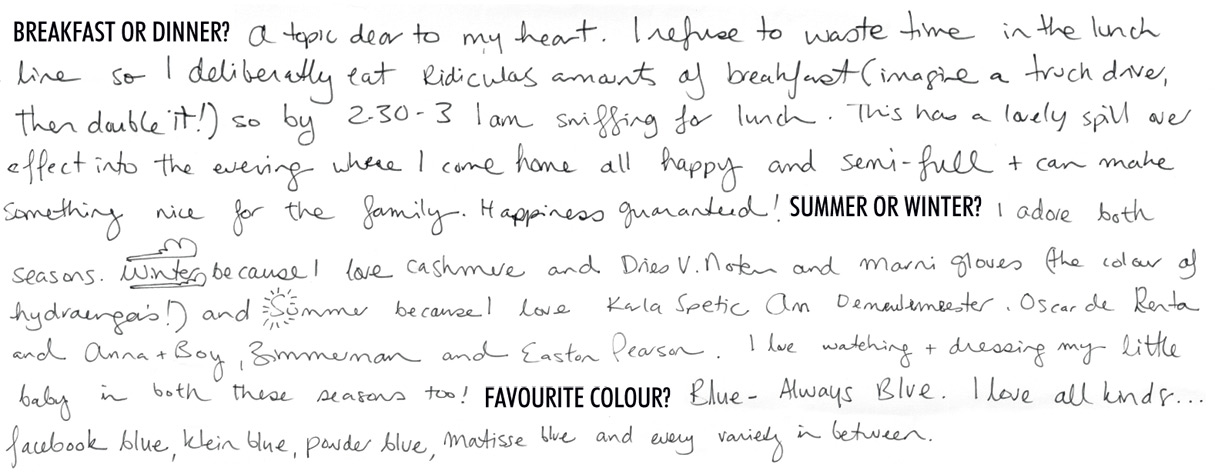 BREAKFAST OR DINNER? A topic dear to my heart. I refuse to waste time in the lunch
line so I deliberatly eat Ridiculas amounts of breakfast (imagine a truck drive,
then double it!) so by 2.30-3 I am sniffing for lunch. This has a lovely spill over
effect into the evening where I come home all happy and semi-full + can make
something nice for the family. Happiness guaranteed! SUMMER OR WINTER? I adore both
seasons. Winter because I love cashmere and Dries V. Noten and marni gloves (the colour of
hydraenga's!) and Summer because I love Karla Spetic An Demeulemeester. Oscar de Renta
and Anna + Boy, Zimmerman and Easton Pearson. I love watching + dressing my little
baby in both these seasons too! FAVOURITE COLOUR? Blue - Always Blue. I love all kinds...
facebook blue, klein blue, powder blue, matisse blue and every variety in between.